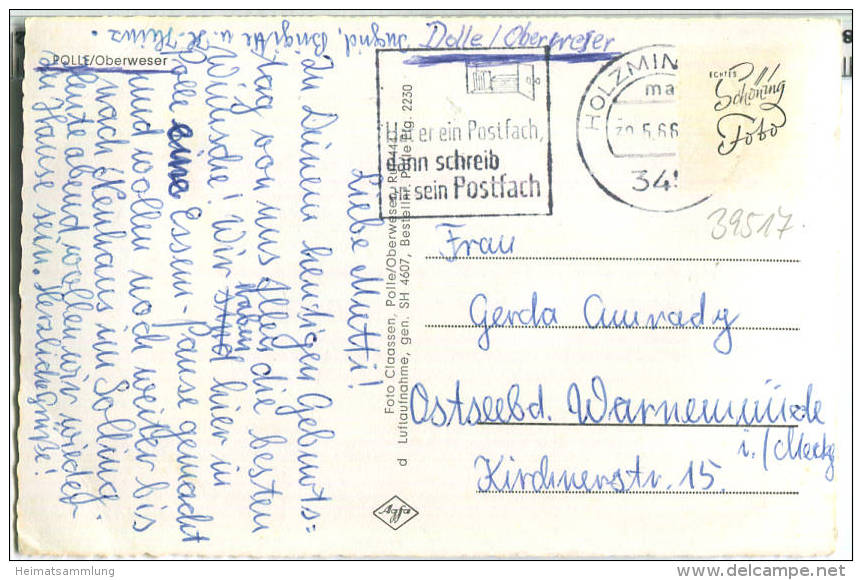 Polle/Oberweser
POLLE/Oberweser
Liebe Mutti!
Zu Deinem heutigen Geburts=
tag von uns Allen die besten
Wünsche! Wir haben hier in
Polle eine Essen-Pause gemacht
und wollen noch weiter bis
nach Neuhaus im Solling.
Heute abend wollen wir wieder
zu Hause sein. Herzliche Grüße!
Ingrid, Brigitte u. K.-Heinz.
er ein Postfach,
dann schreib
an sein Postfach
HOLZMIN
5.66
345
ECHTES
Schöning
Foto
39517
Foto Claassen, Polle/Oberweser, Ruf
d Luftaufnahme, gen. SH 4607, Bestellnr. Polle Htg. 2230
Frau
Gerda Amrady
Ostseebd. Warnemünde
i./Meckg
Kirchnerstr. 15.
Agfa
© Heimatsammlung
www.delcampe.net